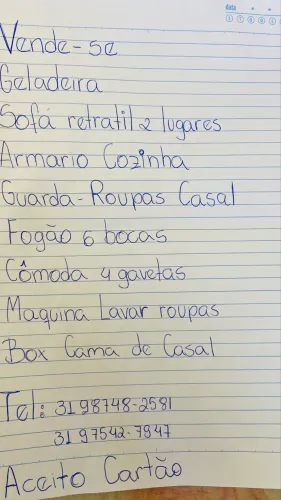 data
Vende-se
Geladeira
Sofá retratil 2 lugares
Armario Cozinha
Guarda-Roupas Casal
Fogão 6 bocas
Cômoda 4 gavetas
Maquina Lavar roupas
Box Cama de Casal
Tel: 31 98748-2581
31 97542-7947
Aceito Cartão